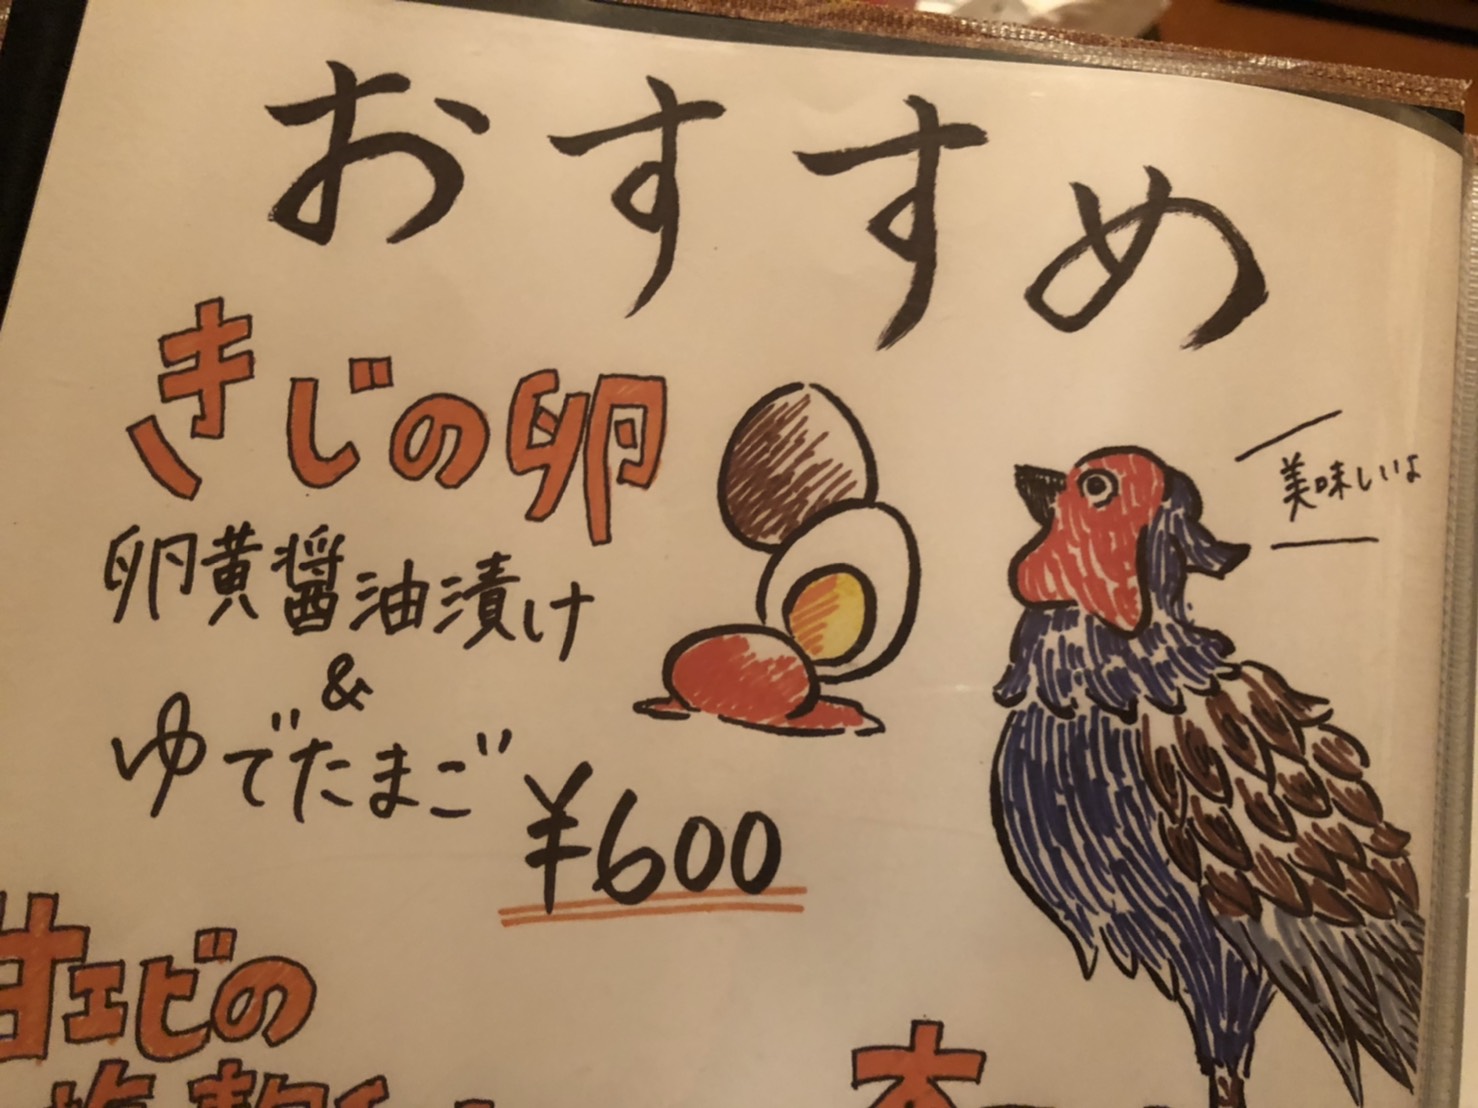 おすすめ
きじの卵
美味しいよ
卵黄醤油漬け
&
ゆでたまご
¥600
甘エビの